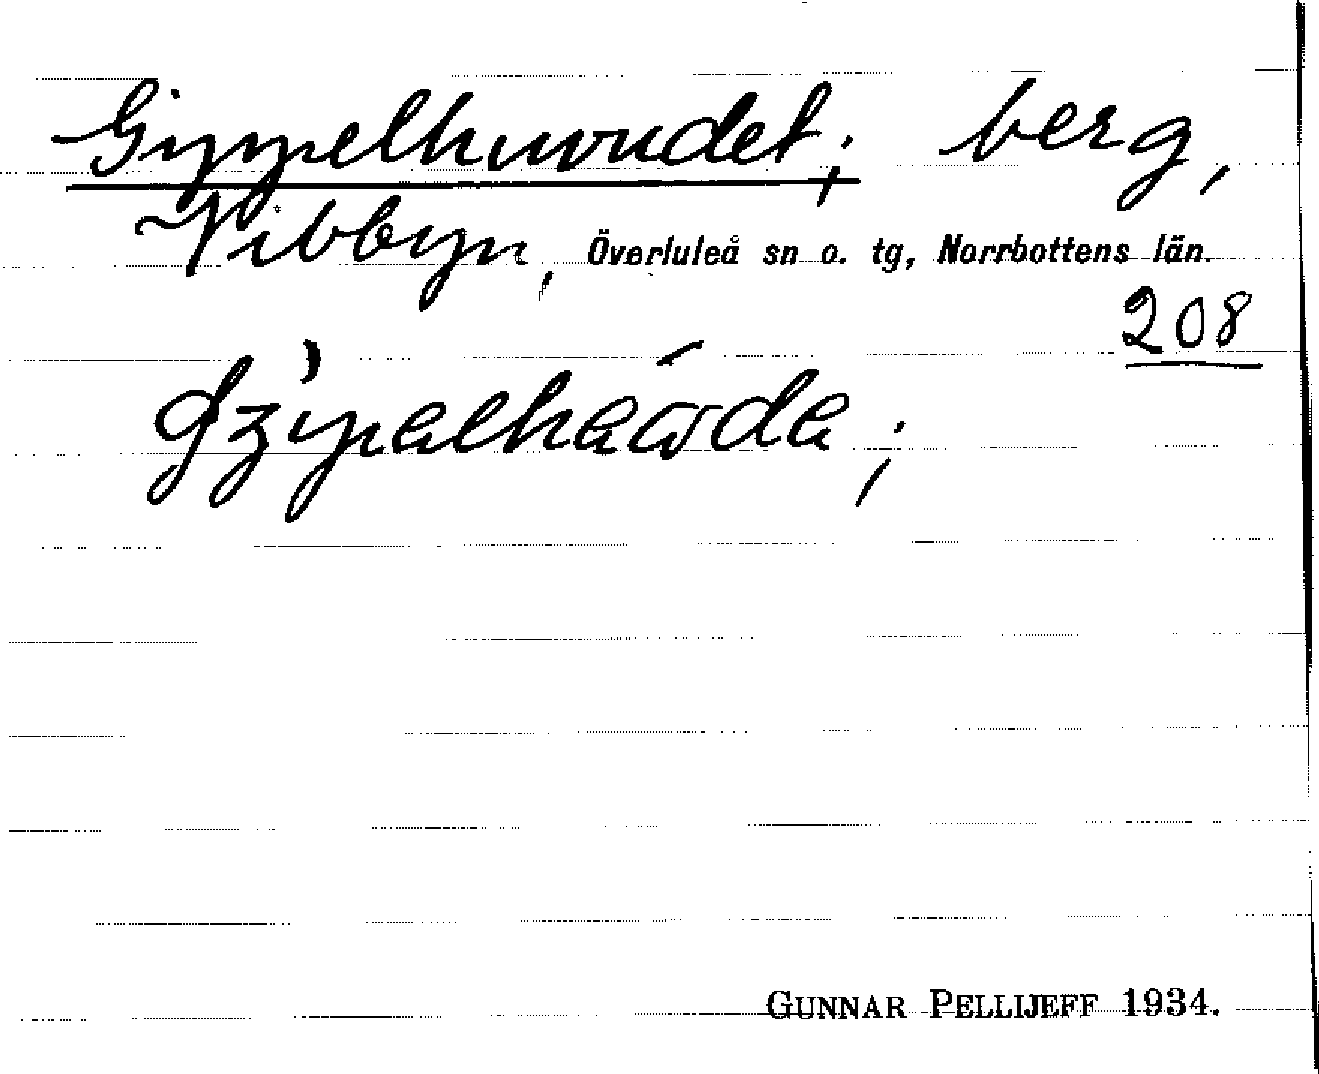 Gippelhuvudet; berg,
Vibbyn, Överluleå sn o. tg, Norrbottens län.
208
GUNNAR PELLIJEFF 1934.